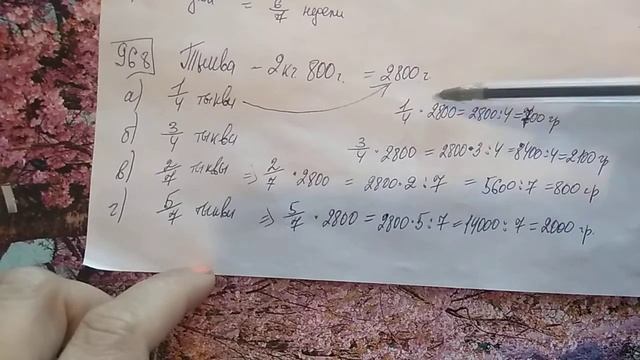 = 6/7 недели
968 Тыква – 2 кг 800 г. = 2800 г
а) 1/4 тыквы 1/4 · 2800 = 2800 : 4 = 700 гр
б) 3/4 тыквы 3/4 · 2800 = 2800 · 3 : 4 = 8400 : 4 = 2100 гр
в) 2/7 тыквы => 2/7 · 2800 = 2800 · 2 : 7 = 5600 : 7 = 800 гр
г) 5/7 тыквы => 5/7 · 2800 = 2800 · 5 : 7 = 14000 : 7 = 2000 гр.